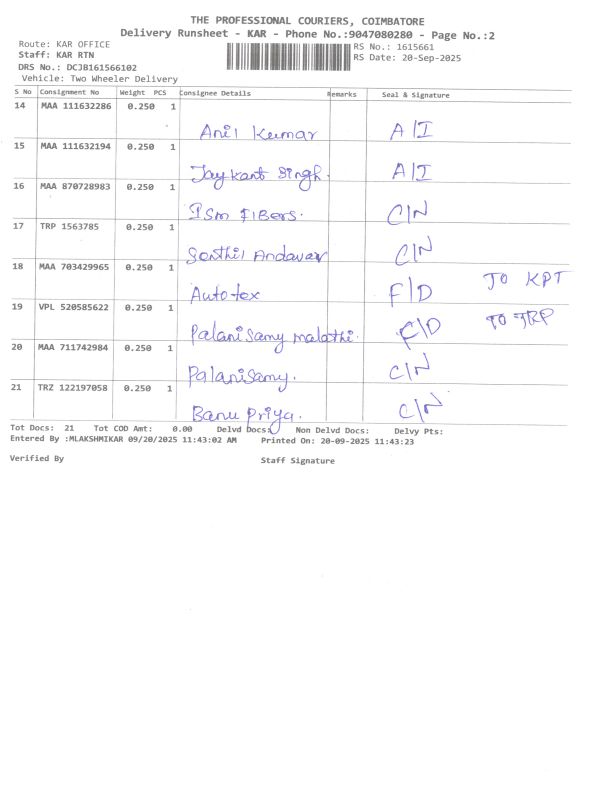 THE PROFESSIONAL COURIERS, COIMBATORE
Delivery Runsheet - KAR - Phone No.:9047080280 - Page No.:2
Route: KAR OFFICE RS No.: 1615661
Staff: KAR RTN RS Date: 20-Sep-2025
DRS No.: DCJB161566102
Vehicle: Two Wheeler Delivery
S No Consignment No Weight PCS Consignee Details Remarks Seal & Signature
14 MAA 111632286 0.250 1
Anil Kumar A/I
15 MAA 111632194 0.250 1
Jaykant Singh. A/I
16 MAA 870728983 0.250 1
PSM FIBers. C/N
17 TRP 1563785 0.250 1
Senthil Andavar C/N
18 MAA 703429965 0.250 1
Autotex F/D TO KPT
19 VPL 520585622 0.250 1
Palanisamy malathi. F/D TO TRP
20 MAA 711742984 0.250 1
Palanisamy. C/N
21 TRZ 122197058 0.250 1
Banu Priya. C/N
Tot Docs: 21 Tot COD Amt: 0.00 Delvd Docs: Non Delvd Docs: Delvy Pts:
Entered By :MLAKSHMIKAR 09/20/2025 11:43:02 AM Printed On: 20-09-2025 11:43:23
Verified By Staff Signature